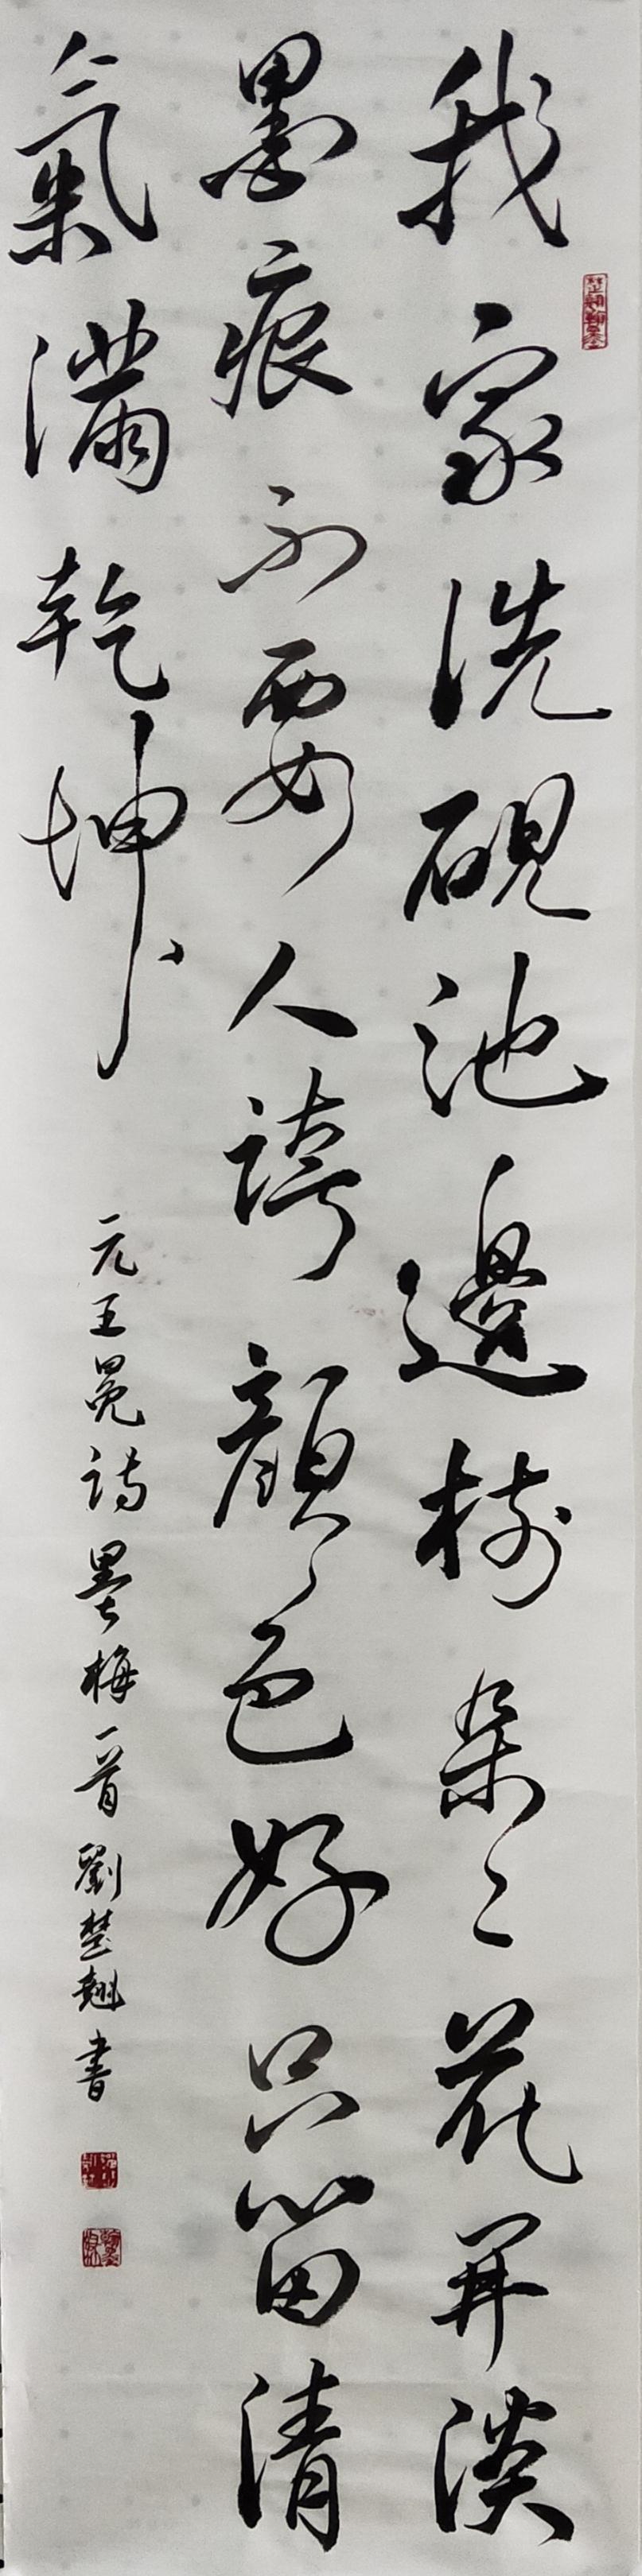 我家洗硯池邊樹朵々花開淡
墨痕不要人誇顏色好只留清
氣滿乾坤
元王冕詩墨梅一首劉楚翹書